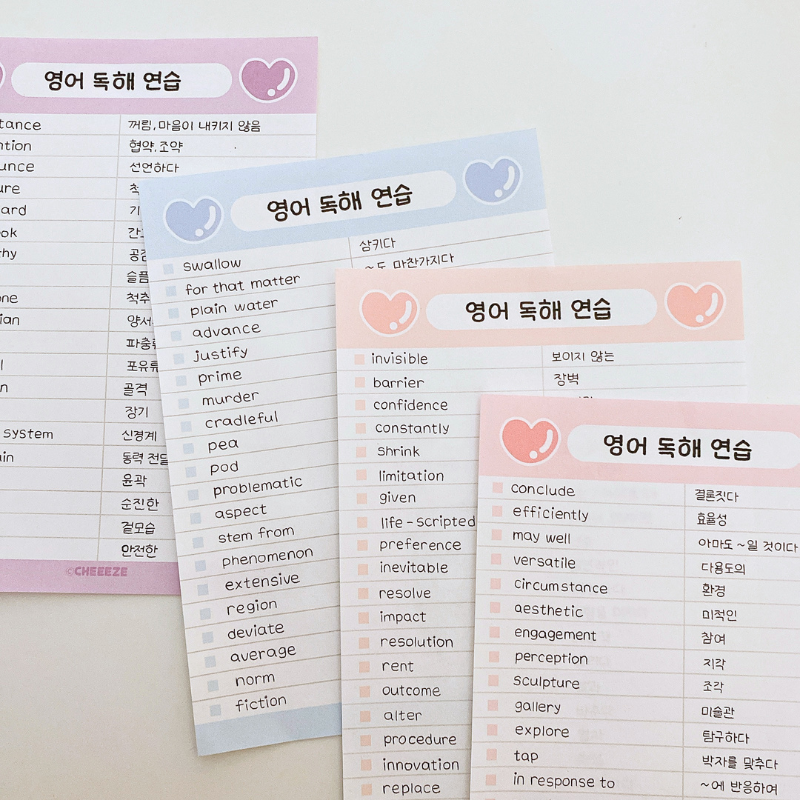 영어 독해 연습
tance 꺼림, 마음이 내키지 않음
ntion 협약, 조약
unce 선언하다
ure 척
ard 기
ok 간
hy 공감
슬픔
one 척추
ian 양서
파충류
l 포유류
n 골격
장기
system 신경계
ain 동력 전달
윤곽
순진한
겉모습
안전한
©CHEEEZE
영어 독해 연습
swallow 삼키다
for that matter ~도 마찬가지다
plain water
advance
justify
prime
murder
cradleful
pea
pod
problematic
aspect
stem from
phenomenon
extensive
region
deviate
average
norm
fiction
영어 독해 연습
invisible 보이지 않는
barrier 장벽
confidence
constantly
shrink
limitation
given
life-scripted
preference
inevitable
resolve
impact
resolution
rent
outcome
alter
procedure
innovation
replace
영어 독해 연습
conclude 결론짓다
efficiently 효율성
may well 아마도 ~일 것이다
versatile 다용도의
circumstance 환경
aesthetic 미적인
engagement 참여
perception 지각
sculpture 조각
gallery 미술관
explore 탐구하다
tap 박자를 맞추다
in response to ~에 반응하여